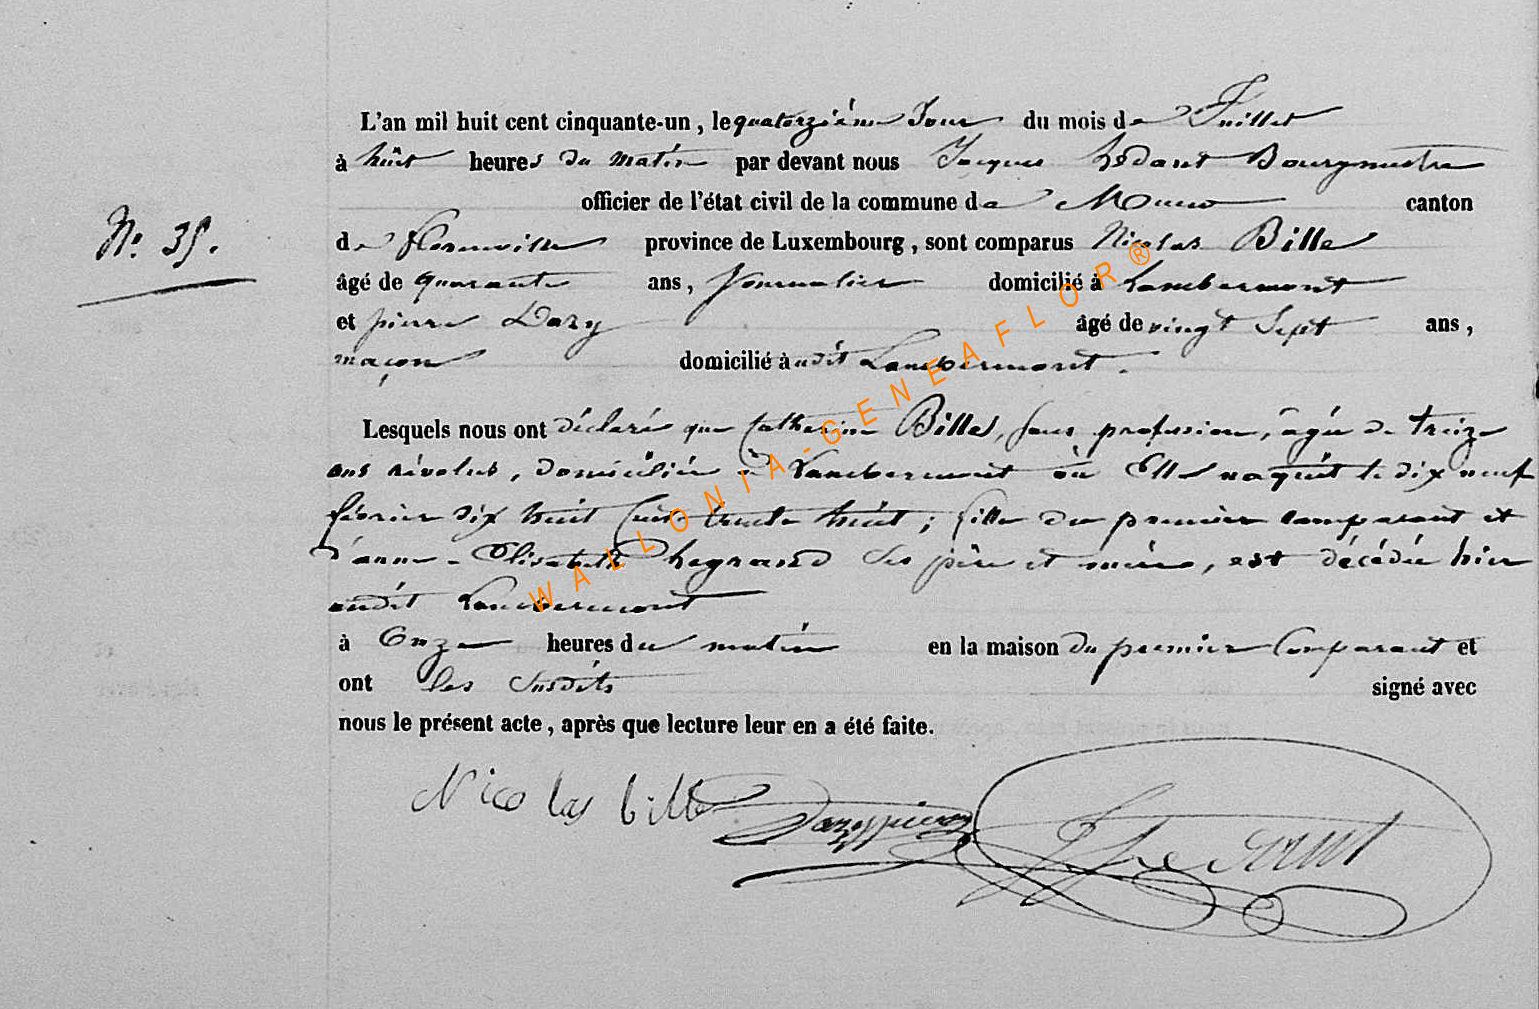 L'an mil huit cent cinquante-un, le quatorzième Jour du mois de Juillet
à huit heures du matin par devant nous Jacques Bourgmestre
officier de l'état civil de la commune de Muno canton
de florenville province de Luxembourg, sont comparus Nicolas Bille
N° 35.
âgé de quarante ans, journalier domicilié à Lambermont
et pierre Dazy âgé de vingt Sept ans,
maçon domicilié audit Lambermont.
Lesquels nous ont déclaré que Catherine Bille, sans profession, âgée de treize
ans révolus, domiciliée à Lambermont où Elle naquit le dix neuf
février dix huit cent trente huit; fille du premier comparant et
d'anne-Elisabeth Legrand ses père et mère, est décédée hier
audit Lambermont
à Onze heures du matin en la maison du premier Comparant et
ont les susdits signé avec
nous le présent acte, après que lecture leur en a été faite.
Nicolas bille Dazy pierre
WALLONIA-GENEAFLOR®